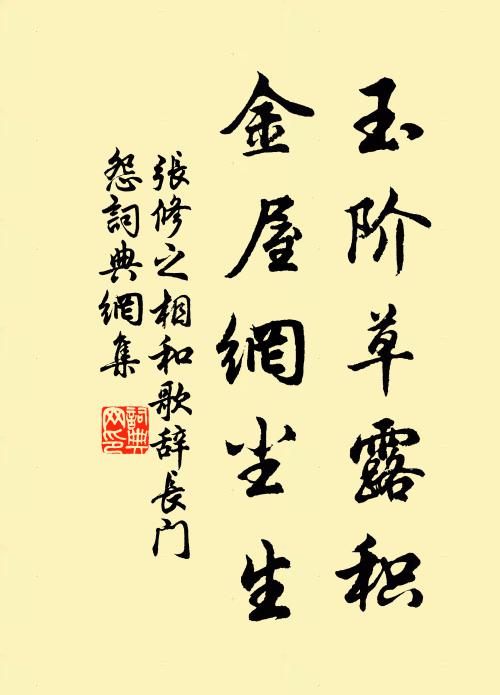 玉阶草露积
金屋網尘生
張修之相和歌辞長门
怨詞典網集
詞典网印